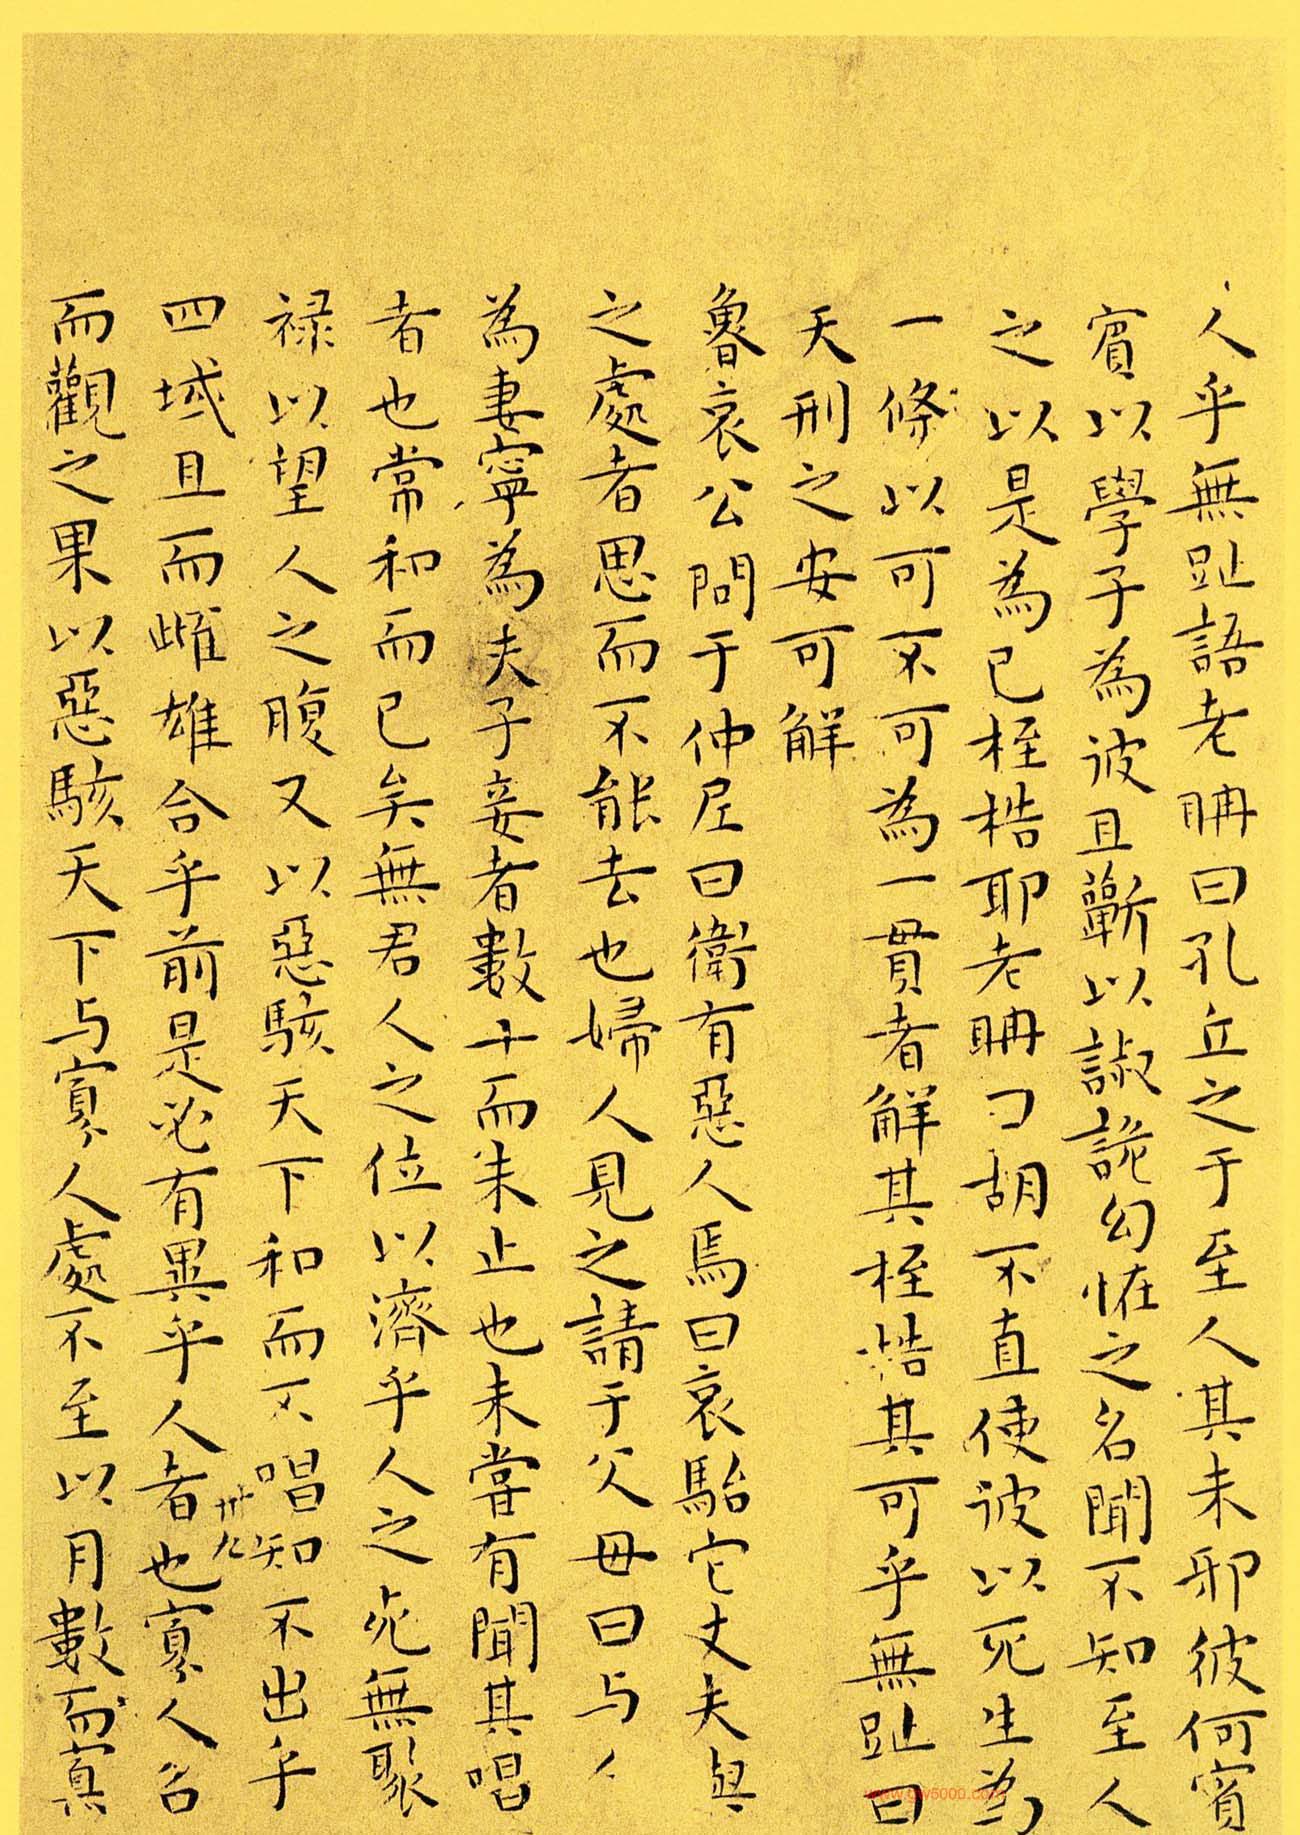 人乎無趾語老聃曰孔丘之于至人其未邪彼何賓
賓以學子為彼且蘄以諔詭幻恠之名聞不知至人
之以是為已桎梏耶老聃曰胡不直使彼以死生為
一條以可不可為一貫者解其桎梏其可乎無趾曰
天刑之安可解
魯哀公問于仲尼曰衛有惡人焉曰哀駘它丈夫與
之處者思而不能去也婦人見之請于父母曰与人
為妻寧為夫子妾者數十而未止也未嘗有聞其唱
者也常和而已矣無君人之位以濟乎人之死無聚
祿以望人之腹又以惡駭天下和而不唱知不出乎
卅九
四域且而雌雄合乎前是必有異乎人者也寡人召
而觀之果以惡駭天下与寡人處不至以月數而寡